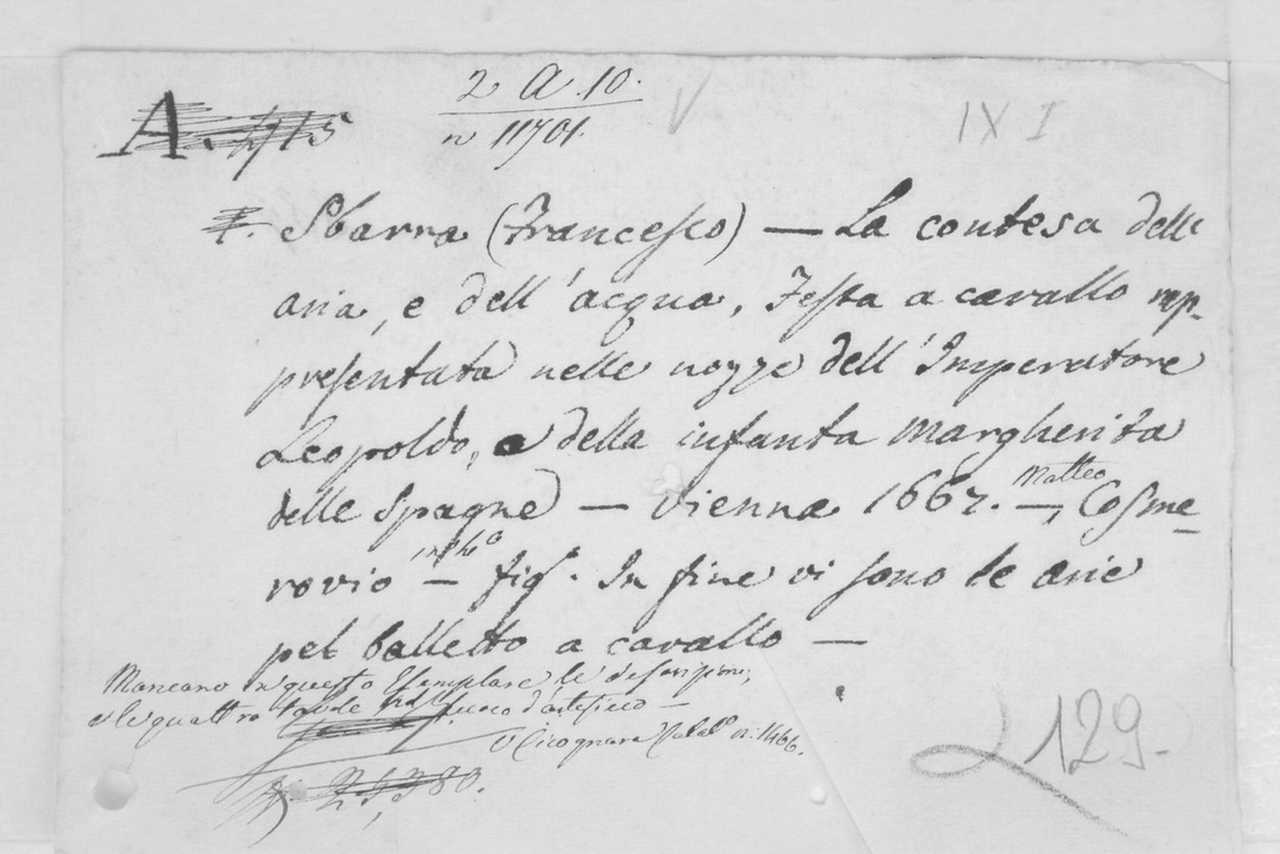 2 A. 10.
A. 115
n 11701.
V
IX I
Sbarra (Francesco) — La contesa dell'
aria, e dell'acqua, Festa a cavallo rap-
presentata nelle nozze dell'Imperatore
Leopoldo, e della infanta Margherita
delle Spagne — Vienna 1667. — Matteo Cosme-
rovio — in fol.o fig. In fine vi sono le arie
pel balletto a cavallo —
Mancano in questo Esemplare le descrizioni,
e le quattro tavole fuoco d'artificio —
V Cicognara Catal.o n: 1466.
129.